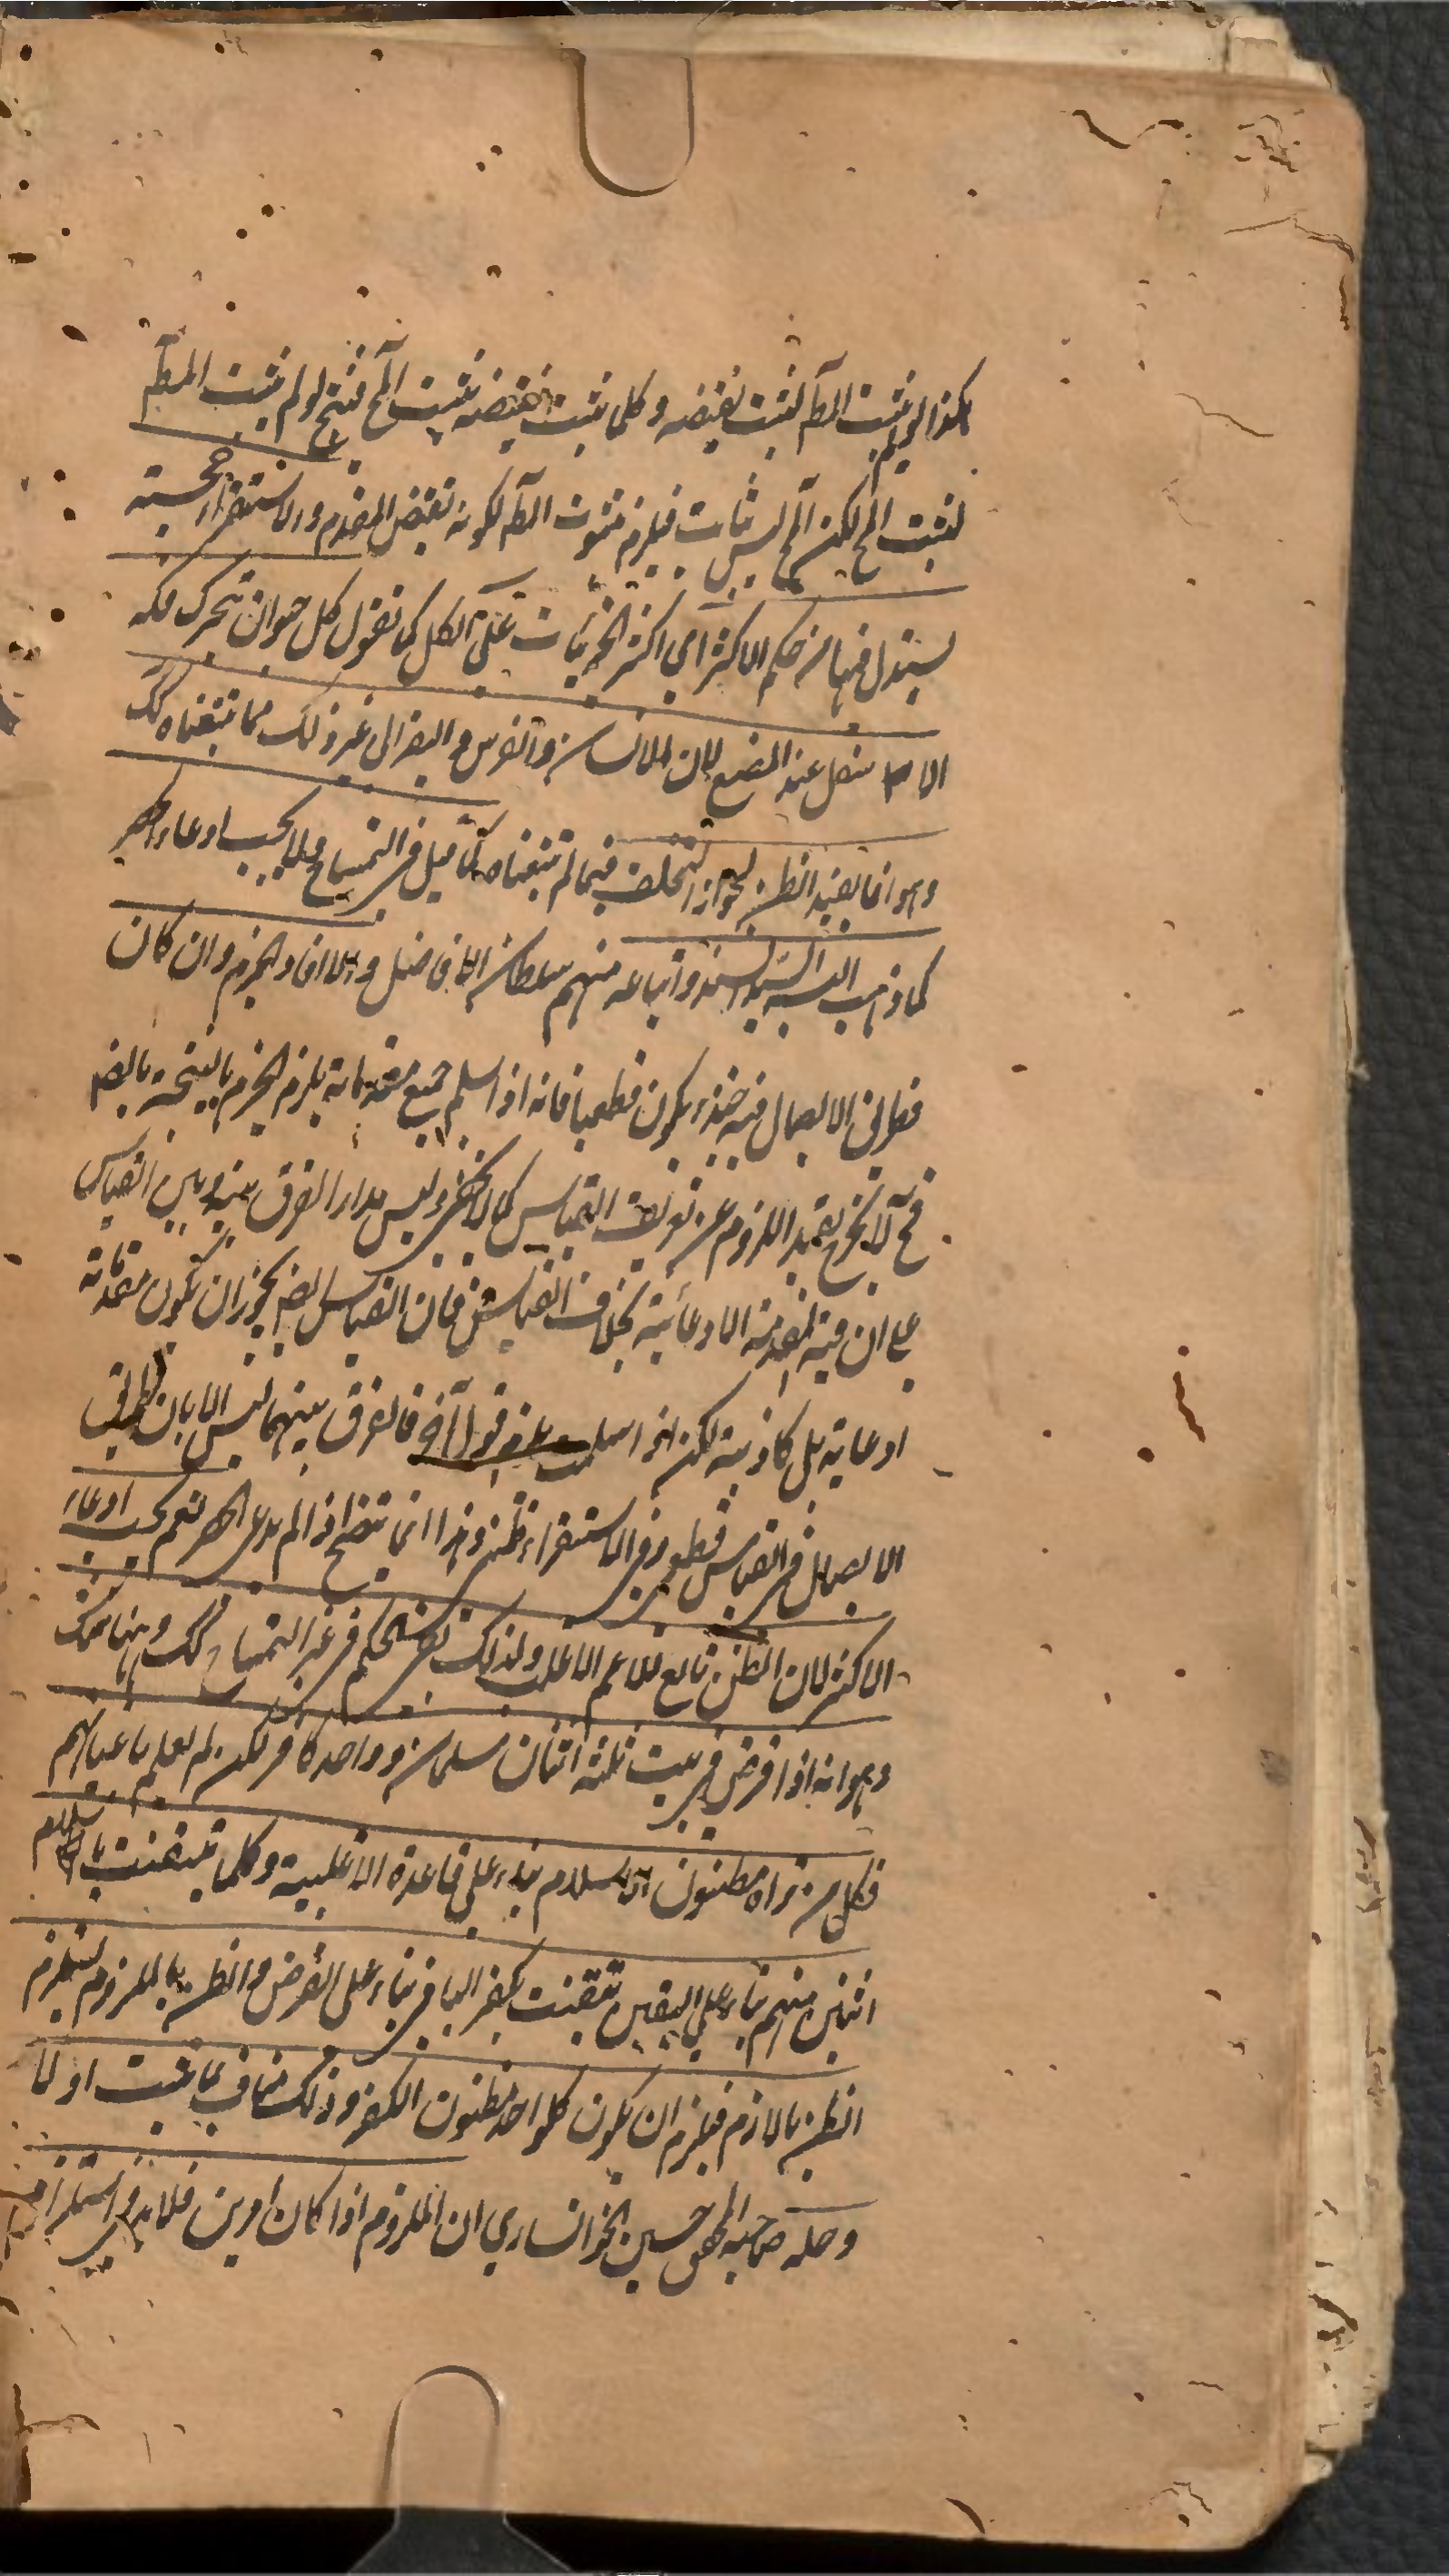 هكذا لو لم يثبت المط لثبت نقيضه وكلما ثبت نقيضه يثبت المح فينتج لو لم يثبت المط
لثبت المح لكن المح ليس بثابت فيلزم ثبوت المط لكونه نقيض المقدم والاستقراء حجة
يستدل فيها من حكم الاكثر اي اكثر الجزئيات على الكل كما نقول كل حيوان يتحرك فكه
الاسفل عند المضغ لان الانسان والفرس والبقر الى غير ذلك مما تتبعناه كك
وهو انما يفيد الظن لجواز التخلف فيما لم نتبعناه كما قيل في التمساح ولا يجب ادعاء الحصر
كما ذهب اليه السيد السند واتباعه منهم سلطان الافاضل والا افاد الجزم وان كان
طريق الايصال فيه حينئذ يكون قطعيا فانه اذا سلم جميع مقدماته يلزم الجزم بالنتيجة بالضر
فح لا يخرج بقيد اللزوم عن تعريف القياس كما لا يخفى وليس مدار الفرق بينه وبين القياس
على ان فيه المقدمة الادعائية بخلاف القياس فان القياس ايضا يجوز ان يكون مقدماته
ادعائية بل كاذبة لكن اذا سلمت يلزم قول آخر فالفرق بينهما ليس الا بان طريق
الايصال في القياس قطعي وفي الاستقراء ظني وهذا انما يتضح اذا لم يدع الحصر نعم يجب ادعاء
الاكثر لان الظن تابع للاعم الاغلب ولذلك بقي الحكم في غير التمساح كك وههنا شك
وهو انه اذا فرض في بيت ثلثة اثنان مسلمان وواحد كافر لكن لم يعلم باعيانهم
فكل من تراه مظنون الاسلام بناء على قاعدة الاغلبية وكلما تيقنت باسلام
اثنين منهم بناء على اليقين تيقنت بكفر الباقي بناء على الفرض والظن بالملزوم يستلزم
الظن باللازم فيلزم ان يكون كل واحد مظنون الكفر وذلك مناف لما ثبت اولا
وحله صاحبه المحقق حسين الخوانساري ان الملزوم اذا كان امرين فلابد في استلزام